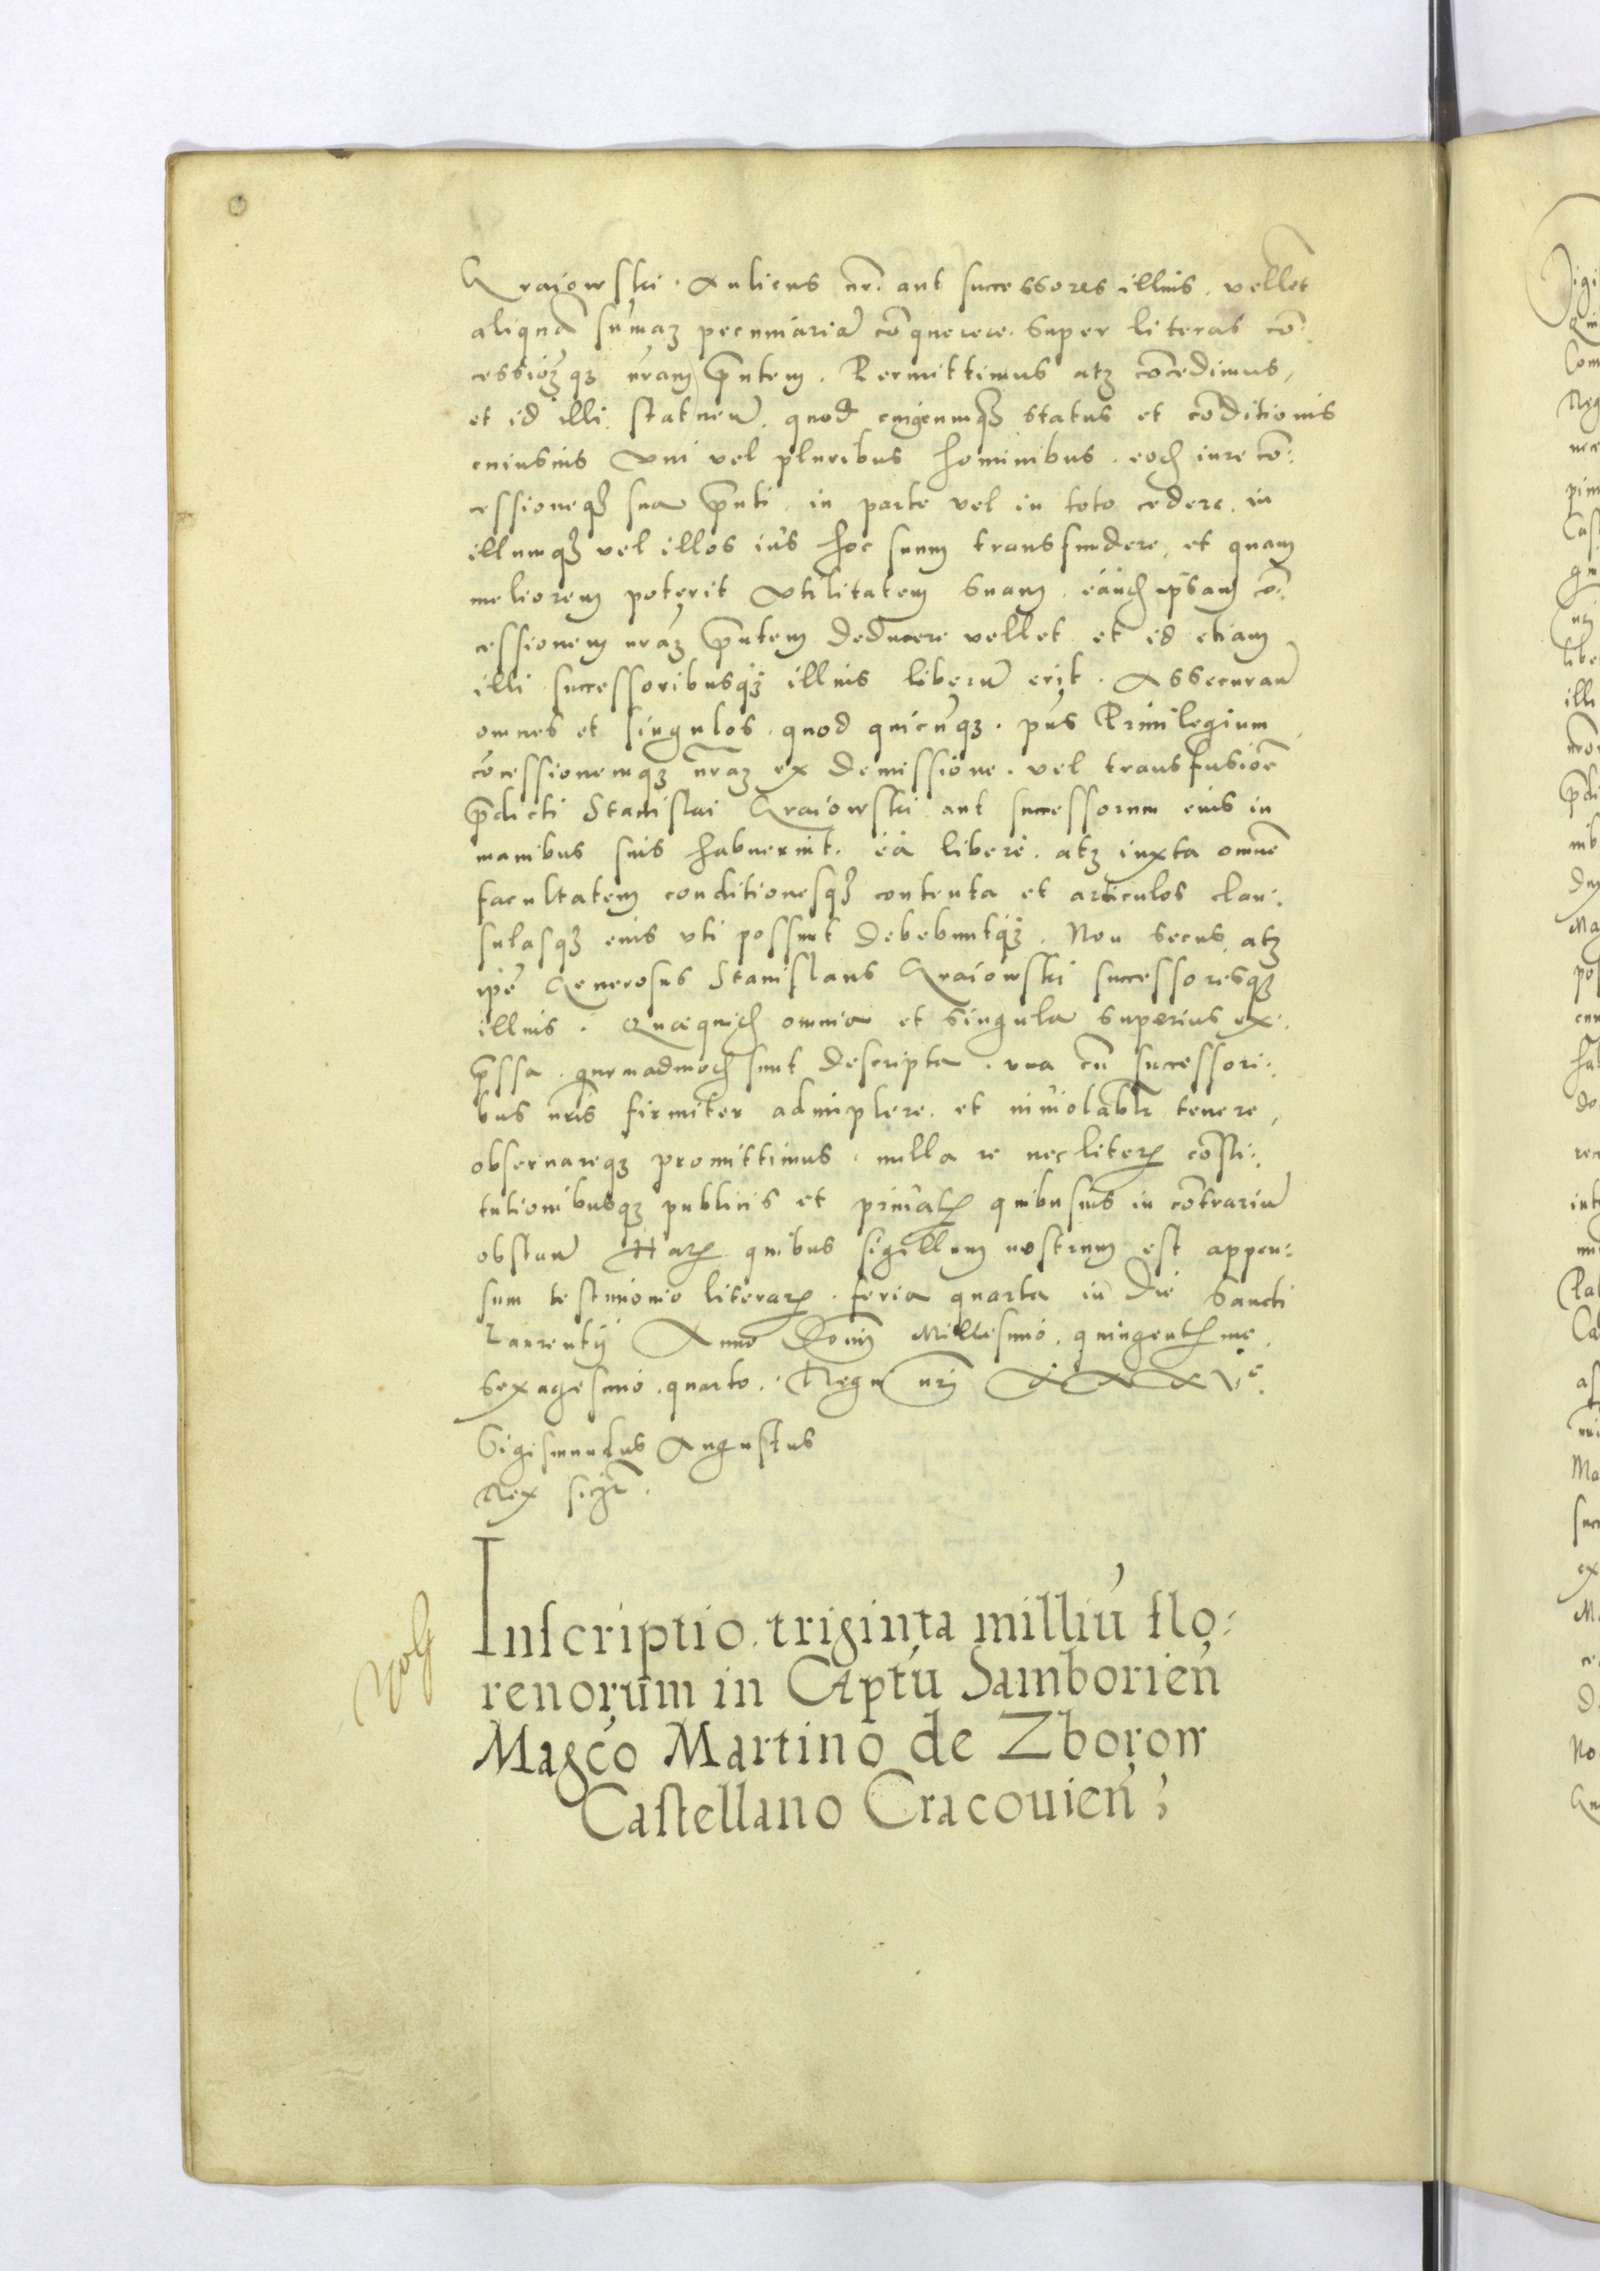 Kraiowski. Aulicus nr̃. aut successores illius. vellet
aliquã sum̃aꝫ pecuniariã cõquerere. super literas cõ:
cessióꝫqꝫ nr̃am p̃ntem. Permittimus atqꝫ cõcedimus,
et id illi statuen̄. quod cuiuscumqꝫ status et cõditionis
cuiusuis vni vel pluribus hominibus. eod̃ iure cõ:
cessioneqꝫ sua p̃nti. in parte vel in toto cedere. in
illumqꝫ vel illos ius hoc suum transfundere, et quam
meliorem poterit vtilitatem suam. eand̃ ip̃sam cõ:
cessionem nr̃aꝫ p̃ntem deducere vellet et id etiam
illi successoribusqꝫ illius liberũ erit. Assecuran̄
omnes et singulos. quod quicũqꝫ. p̃ns Priuilegium,
cõcessionemqꝫ nr̃aꝫ ex demissione. vel transfusiõe
p̃dicti Stanislai Kraiowski aut successorum eius in
manibus suis habuerint. ea libere. atqꝫ iuxta omnẽ
facultatem conditionesqꝫ contenta et articulos clau:
sulasqꝫ eius vti possunt debebuntqꝫ. Non secus atqꝫ
ip̃e Generosus Stanislaus Kraiowski successoresqꝫ
illius. Quæquid̃ omnia et singula superius ex:
p̃ssa. quemadmod̃ sunt descripta. vna cũ successori:
bus nr̃is firmiter adimplere. et inuiolabl̃r tenere,
obseruareqꝫ promittimus. nulla re nec literꝝ cõsti:
tutionibusqꝫ publicis et priuatꝝ quibusuis in cõtrariũ
obstan̄ Harꝝ quibus sigillum nostrum est appen:
sum testimonio literarꝝ. feria quarta in die Sancti
Laurentij Anno Domi Millesimo. quingentes̃imo.
sexagesimo. quarto. Regni nr̃i XXXVᵒ.
Sigismundus Augustus
Rex
Inscriptio. triginta milliũ flo:
renorum in Captũ Samborien̄
Magc̃o Martino de Zborow
Castellano Cracouien̄;